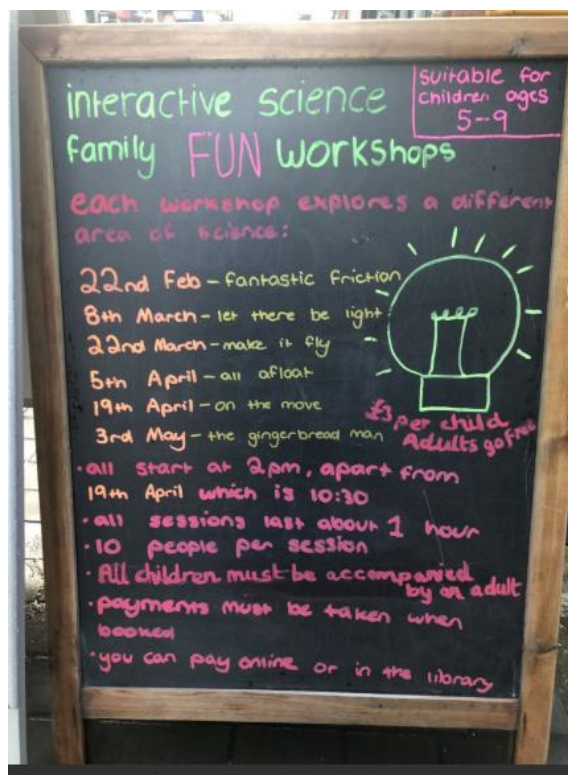 interactive science
family FUN workshops
suitable for
children ages
5--9
each workshop explores a different
area of science:
22nd Feb - fantastic friction
8th March - let there be light
22nd March - make it fly
5th April - all afloat
19th April - on the move
3rd May - the gingerbread man
£3 per child
Adults go free
• all start at 2pm, apart from
19th April which is 10:30
• all sessions last about 1 hour
• 10 people per session
• All children must be accompanied
by an adult
• payments must be taken when
booked
• you can pay online or in the library